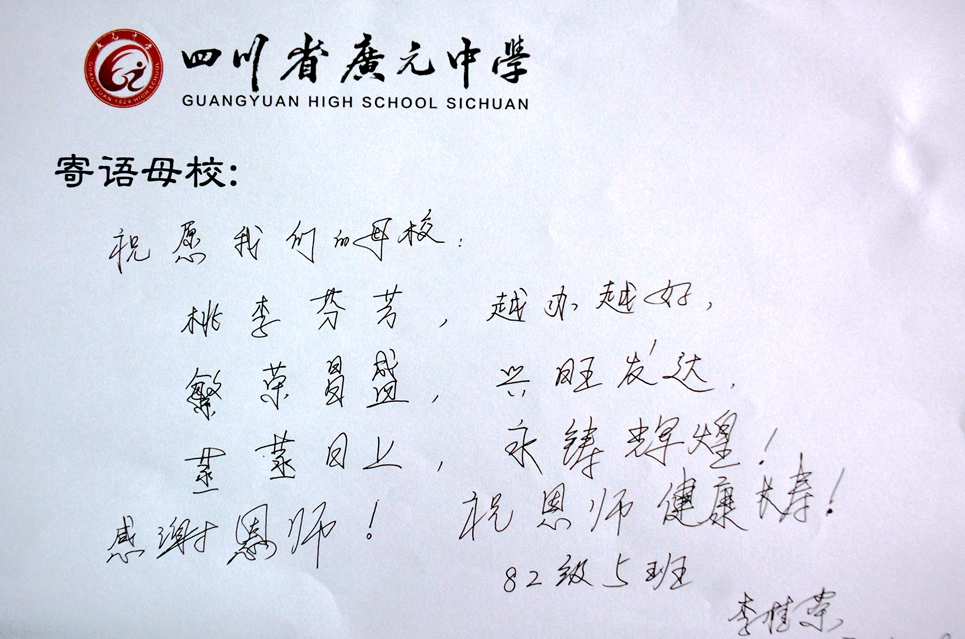 四川省廣元中學
GUANGYUAN HIGH SCHOOL SICHUAN
寄语母校:
祝愿我们的母校:
桃李芬芳,越办越好,
繁荣昌盛,兴旺发达,
蒸蒸日上,永铸辉煌!
感谢恩师! 祝恩师健康长寿!
82级5班
李桂荣